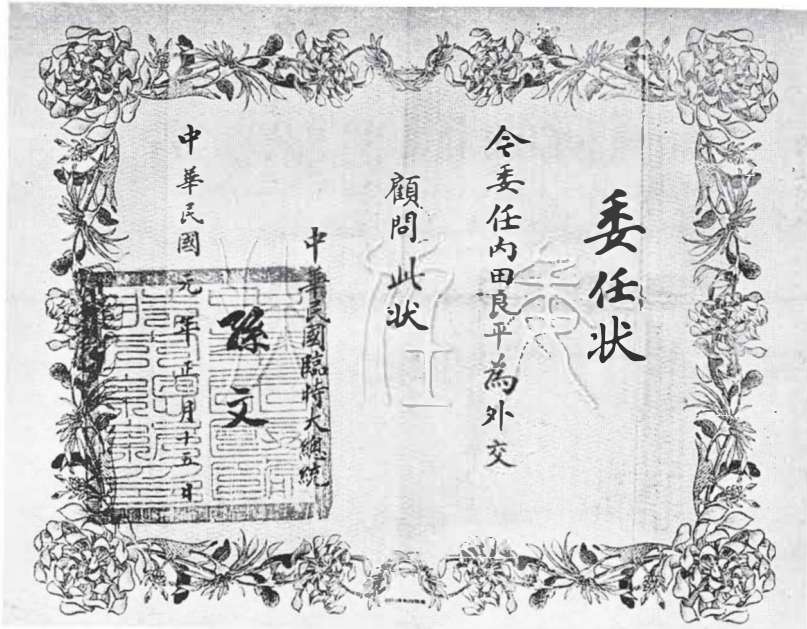 委任状
令委任内田良平為外交
顧問此状
中華民國臨時大總統
孫文
中華民國元年正月十五日